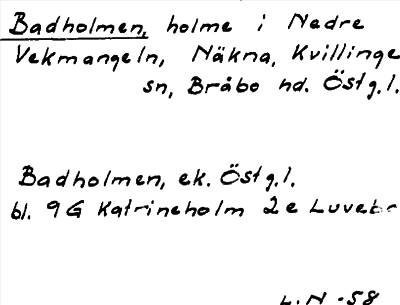 Badholmen, holme i Nedre
Vekmangeln, Näkna, Kvillinge
sn, Bråbo hd. Östg.l.
Badholmen, ek. Östg.l.
bl. 9G Katrineholm 2e Luvebr
L.N -58